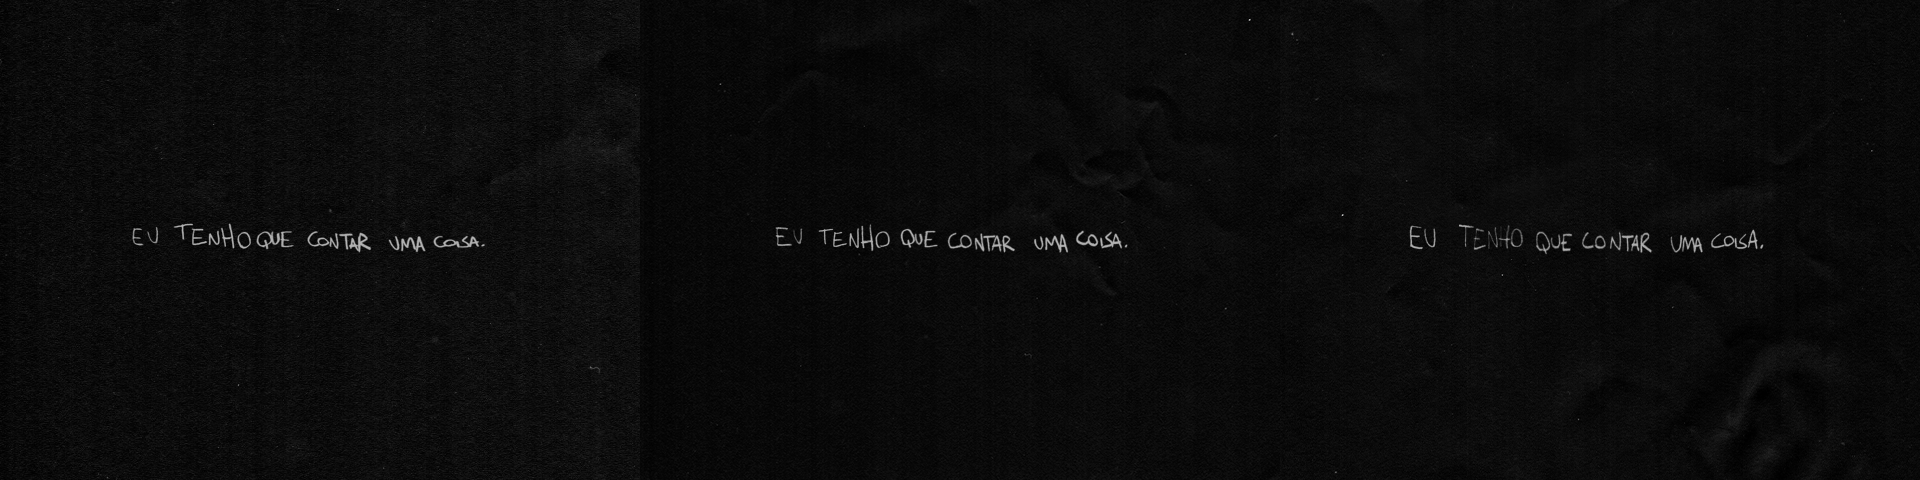 EU TENHO QUE CONTAR UMA COISA.
EU TENHO QUE CONTAR UMA COISA.
EU TENHO QUE CONTAR UMA COISA.